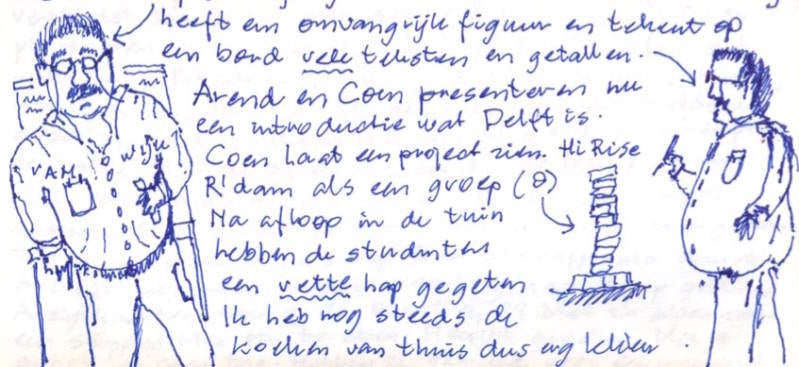 heeft een omvangrijk figuur en tekent op
een bord vele teksten en getallen.
Arend en Coen presenteren nu
een introductie wat Delft is.
Coen laat een project zien. Hi Rise
R'dam als een groep (8)
Na afloop in de tuin
hebben de studenten
een vette hap gegeten
Ik heb nog steeds de
koeken van thuis dus erg lekker
VAN WIJK